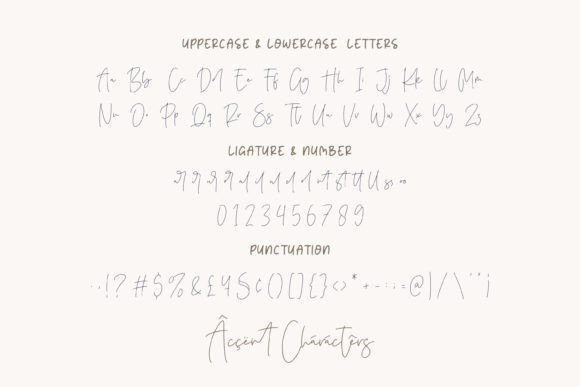 UPPERCASE & LOWERCASE LETTERS
Aa Bb Cc Dd Ee Ff Gg Hh Ii Jj Kk Ll Mm
Nn Oo Pp Qq Rr Ss Tt Uu Vv Ww Xx Yy Zz
LIGATURE & NUMBER
0 1 2 3 4 5 6 7 8 9
PUNCTUATION
. , ! ? # $ % & £ ¥ § ¢ ( ) [ ] { } < > * + - : ; = @ | / \ ' " ¡
Âcçënt Cháráctêrs